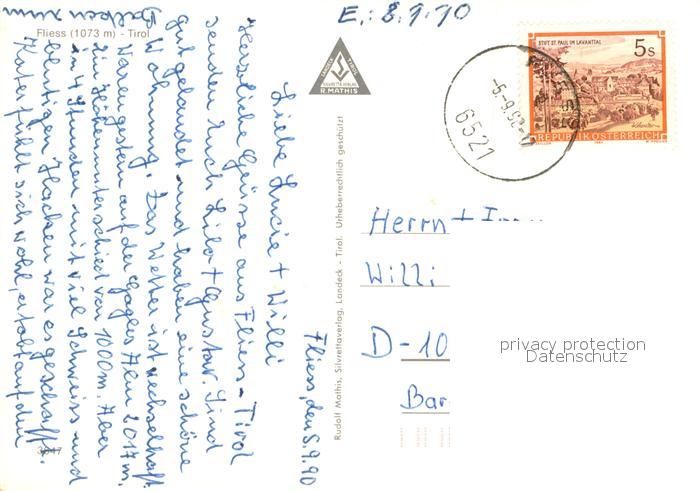 Fliess (1073 m) - Tirol
E.: 8.9.90
STIFT ST. PAUL IM LAVANTTAL
5s
REPUBLIK ÖSTERREICH
-5.-9.90-17
6521
R. MATHIS
Fliess, den 5.9.90
Liebe Lucie + Willi
Herzliche Grüsse aus Fliess - Tirol
senden Euch Lilo + Gustav. Sind
gut gelandet und haben eine schöne
Wohnung. Das Wetter ist wechselhaft.
Waren gestern auf der Gogles Alm 2017 m.
Ein Höhenunterschied von 1000 m. Aber
in 4 Stunden mit viel Schweiss und
blutigen Hacken war es geschafft.
Kater fühlt sich wohl, er tobt auf dem
Balken rum
Rudolf Mathis, Silvrettaverlag, Landeck - Tirol. Urheberrechtlich geschützt
Herrn +
Willi
D-10
Bar
privacy protection
Datenschutz
3047